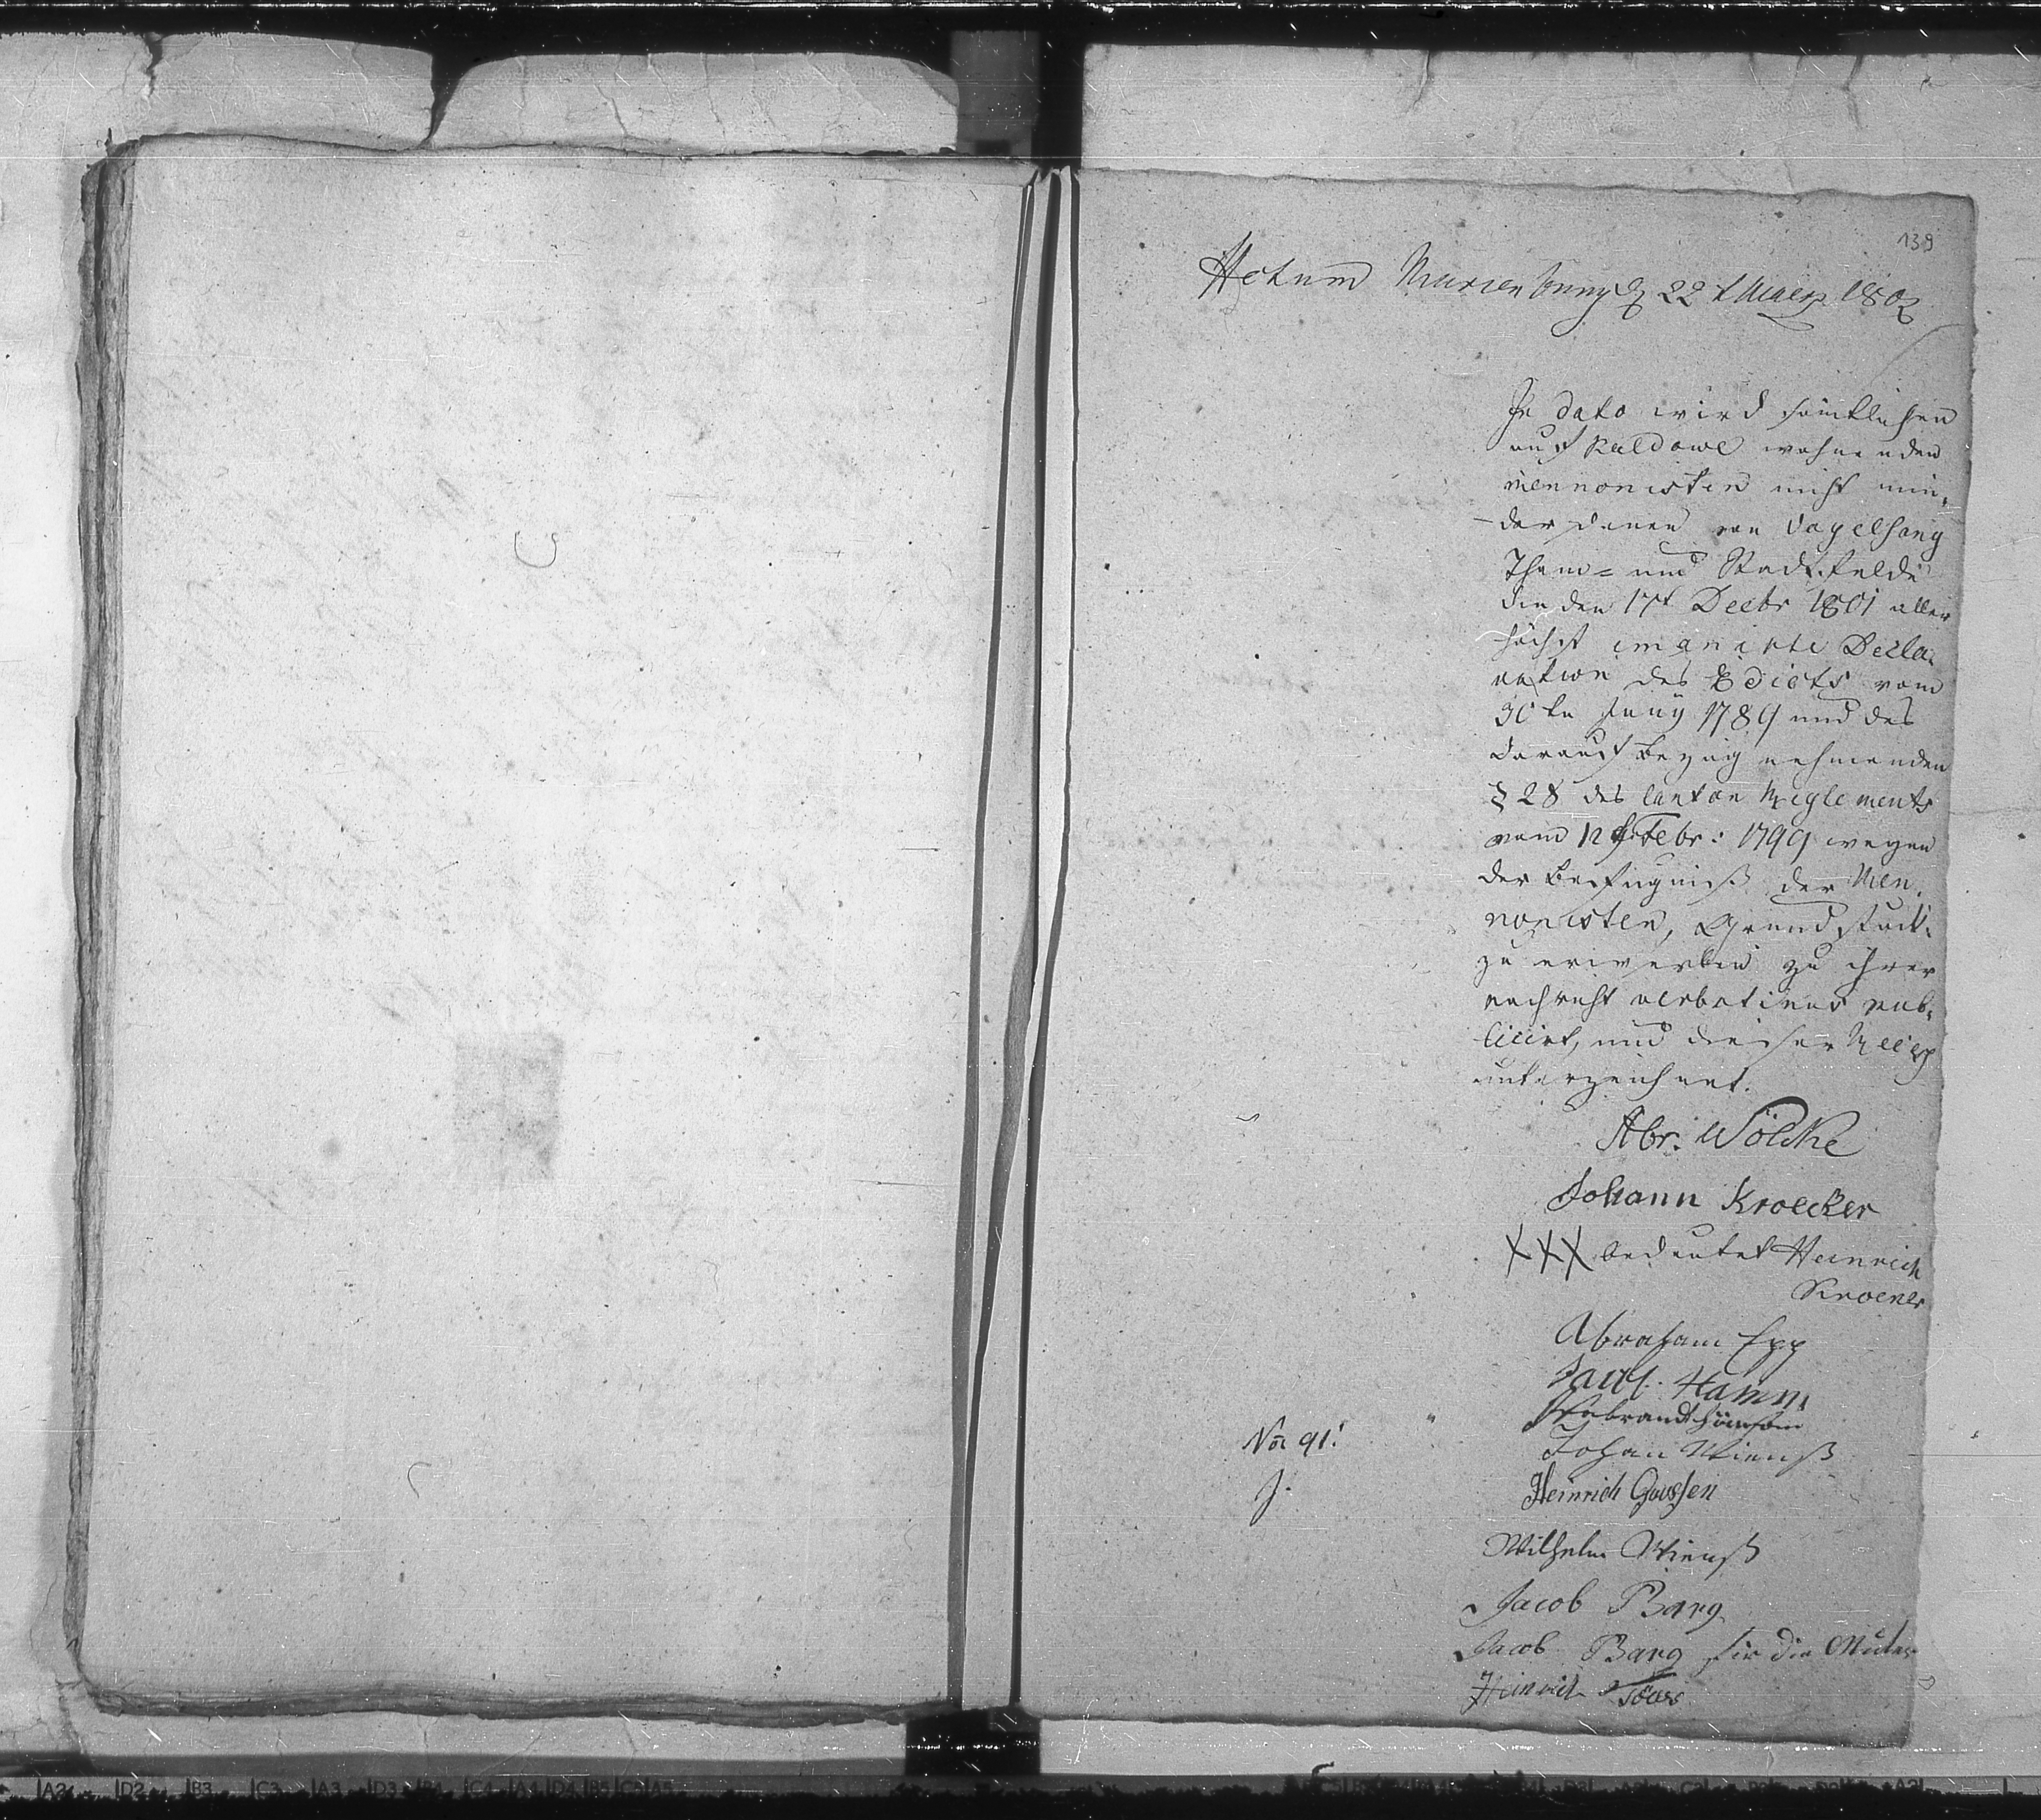 139
Actum Marienburg d 22t Maerz 1802
In dato wird sämtlichen
auf Kaldowe wohnenden
Mennonisten nicht min-
der denen von Vogelsang
Tham= und Stadtfelde
die den 17t Decbr 1801 aller
höchst emanirte Decla-
ration des Edicts vom
30ten Juny 1789 und des
darauf bezug nehmenden
§ 28 des Canton Reglements
vom 12t Febr: 1799 wegen
der Befugniß der Men-
nonisten, Grundstück-
zu erwerben zu ihrer
nachricht verbotenus pub-
licirt, und dieser
unterzeichnet.
Abr. Wölcke
Johann Kroecker
XXX bedeutet Heinrich
Kroeker
Abraham Epp
Jacob Hamm
Johan Wienß
No 91.
Heinrich Goossen
Wilhelm Wienß
Jacob Barg
Jacob Barg für die Muter
Heinrich Töws